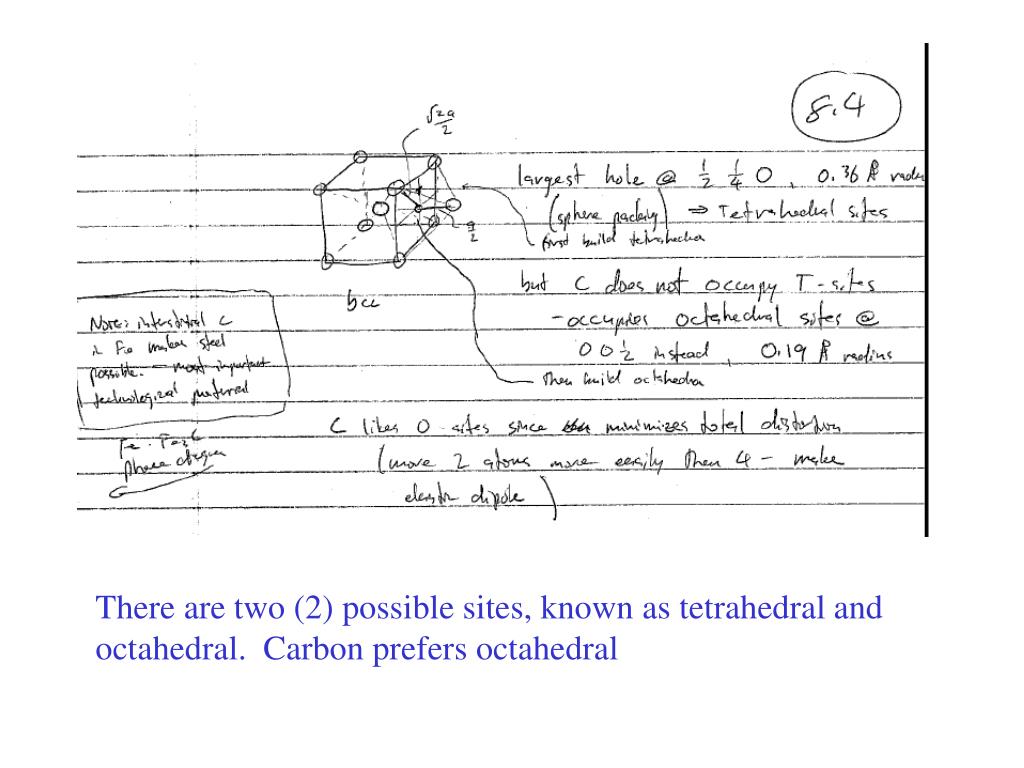 8.4
√2a
2
largest hole @ 1/2 1/4 0, 0.36 Å radius
(sphere packing) ⇒ Tetrahedral sites
first build tetrahedra
a
2
but C does not occupy T-sites
bcc
- occupies octahedral sites @
0 0 1/2 instead, 0.19 Å radius
Then build octahedra
Note: interstitial C
in Fe makes steel
possible. - most important
technological
C likes O-sites since minimizes total distortion
(move 2 atoms more easily then 4 - make
elastic dipole)
Fe - Fe3C
phase diagram
There are two (2) possible sites, known as tetrahedral and
octahedral. Carbon prefers octahedral